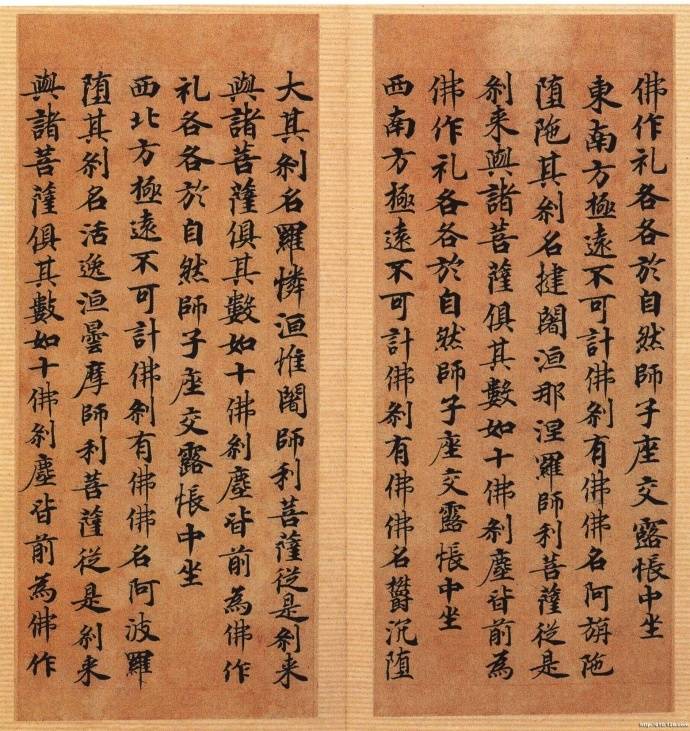 佛作礼各各於自然師子座交露帳中坐
東南方極遠不可計佛刹有佛佛名阿旃陁
堕陁其刹名揵闍洹那涅羅師利菩薩従是
刹来與諸菩薩俱其數如十佛刹塵皆前為
佛作礼各各於自然師子座交露帳中坐
西南方極遠不可計佛刹有佛佛名欝沉堕
大其刹名羅憐洹惟闍師利菩薩従是刹来
與諸菩薩俱其數如十佛刹塵皆前為佛作
礼各各於自然師子座交露帳中坐
西北方極遠不可計佛刹有佛佛名阿波羅
堕其刹名活逸洹曇摩師利菩薩従是刹来
與諸菩薩俱其數如十佛刹塵皆前為佛作